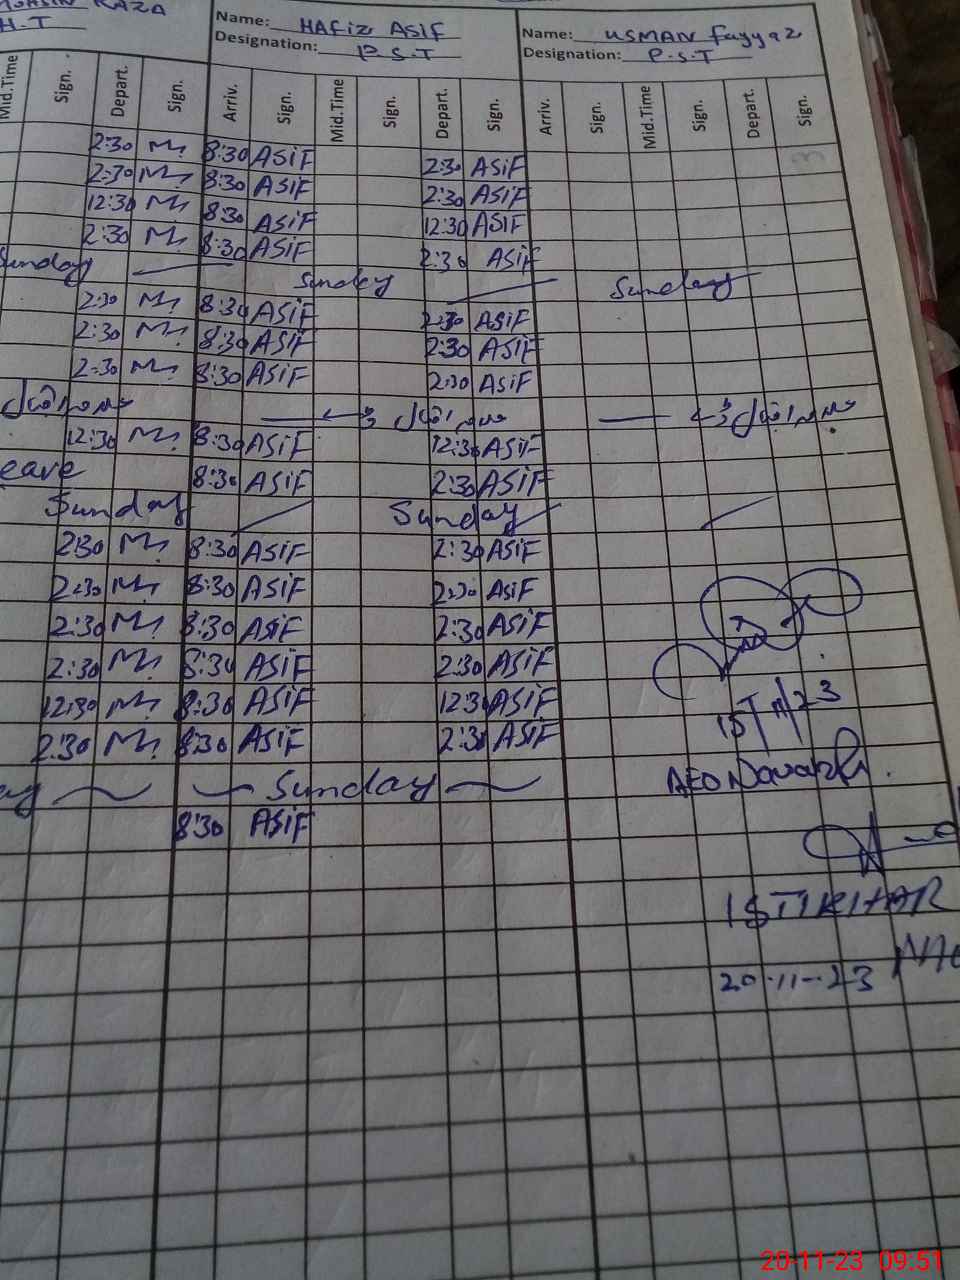 RAZA Name: HAfiz ASIF Name: USMAN Fayyaz
H.T Designation: P.S.T Designation: P.S.T
Mid.Time Sign. Depart. Sign. Arriv. Sign. Mid.Time Sign. Depart. Sign. Arriv. Sign. Mid.Time Sign. Depart. Sign.
2:30 8:30 ASiF 2:30 ASiF
2:30 8:30 ASiF 2:30 ASiF
12:30 8:30 ASiF 12:30 ASiF
2:30 8:30 ASiF 2:30 ASiF
Sunday Sunday Sunday
2:30 8:30 ASiF 2:30 ASiF
2:30 8:30 ASiF 2:30 ASiF
2:30 8:30 ASiF 2:30 ASiF
12:30 8:30 ASiF 12:30 ASiF
eave 8:30 ASiF 2:30 ASiF
Sunday Sunday
2:30 8:30 ASiF 2:30 ASiF
2:30 8:30 ASiF 2:30 ASiF
2:30 8:30 ASiF 2:30 ASiF
2:30 8:30 ASiF 2:30 ASiF
12:30 8:30 ASiF 12:30 ASiF
2:30 8:30 ASiF 2:30 ASiF
15/11/23
AEO
ay Sunday
8:30 ASiF
20-11-23
20-11-23 09:51